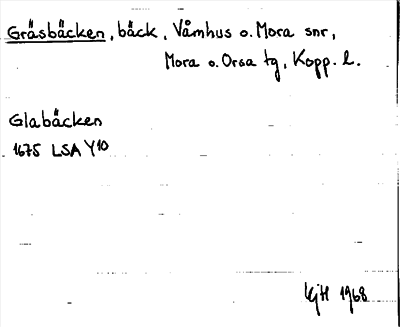 Gräsbäcken, bäck, Våmhus o. Mora snr,
Mora o. Orsa tg, Kopp. l.
Glabäcken
1675 LSA Y10
1968